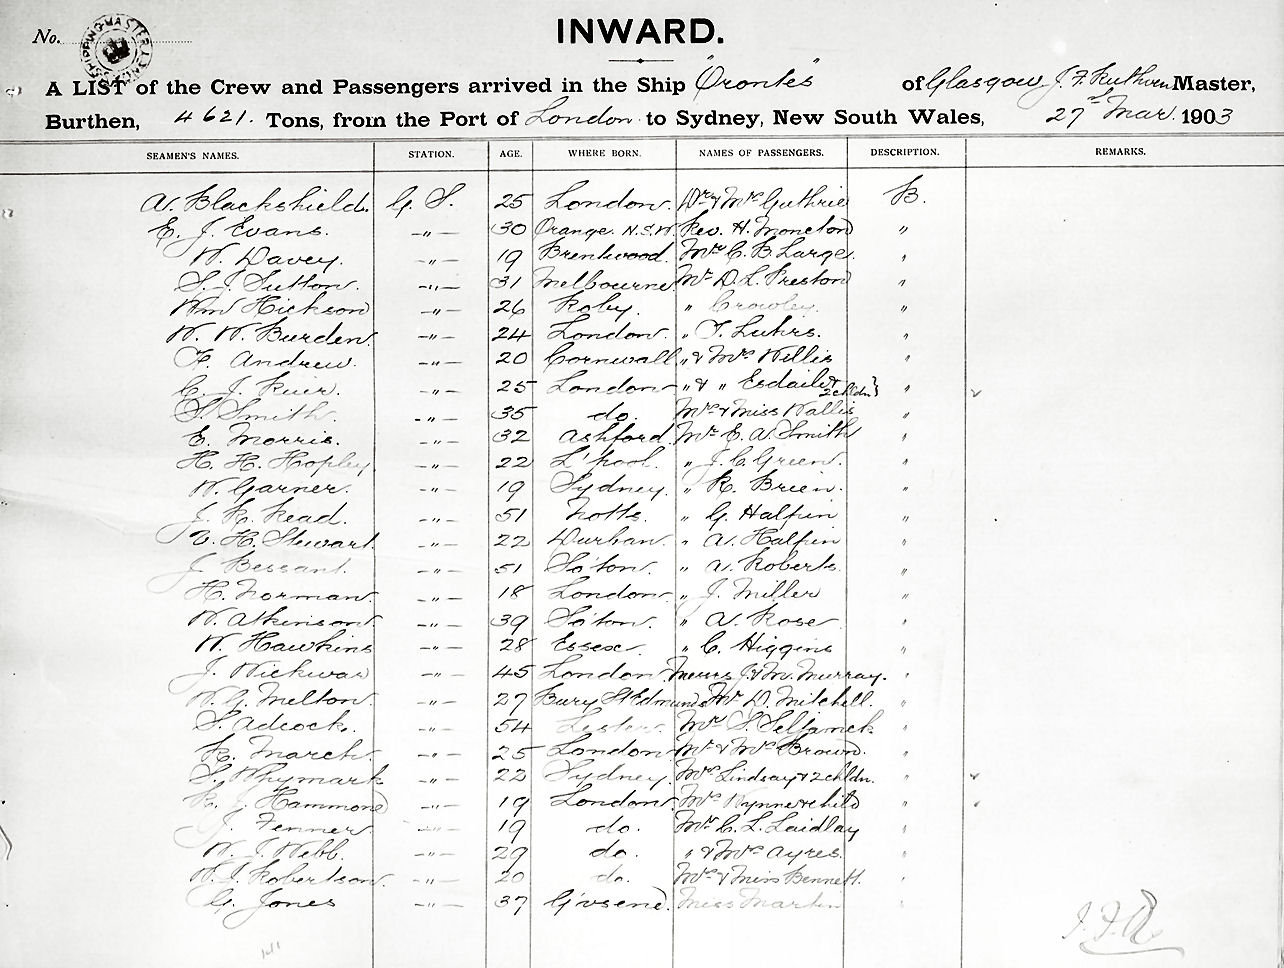 INWARD.
No.
SHIPPING MASTER
A LIST of the Crew and Passengers arrived in the Ship "Orontes" of Glasgow J. F. Ruthven Master,
Burthen, 4621. Tons, from the Port of London to Sydney, New South Wales, 27th Mar. 1903
SEAMEN'S NAMES. STATION. AGE. WHERE BORN. NAMES OF PASSENGERS. DESCRIPTION. REMARKS.
A. Blackshield. G. S. 25 London. Dr & Mrs Guthrie B.
E. J. Evans. -"- 30 Orange. N.S.W. Rev. H. Moncton "
W. Davey. -"- 19 Brentwood. Mr C. B. Large. "
S. J. Sutton. -"- 31 Melbourne Mr D. L. Preston "
Wm Hickson -"- 26 Roby. " Crowley. "
W. W. Burden. -"- 24 London. " T. Luhrs. "
F. Andrew. -"- 20 Cornwall " & Mrs Willis "
C. J. -"- 25 London " & " Esdaile & 2 chldn } "
S. Smith. -"- 35 do. Mrs & Miss Wallis "
E. Morris. -"- 32 Ashford. Mr E. A. Smith "
H. H. Hopley -"- 22 L'pool. " J. C. Green. "
W. Garner. -"- 19 Sydney. " R. Brien. "
J. R. Read. -"- 51 Notts. " G. Halpin "
V. H. Stewart -"- 22 Durban. " A. Halpin "
J. Bessant. -"- 51 So'ton. " A. Roberts. "
H. Norman. -"- 18 London. " J. Miller "
W. Atkinson -"- 39 So'ton. " A. Rose "
W. Hawkins -"- 28 Essex. " C. Higgins "
J. Wickwar -"- 45 London Messrs J. & M. Murray. "
W. G. Melton. -"- 27 Bury St Edmunds Mr D. Mitchell. "
S. Adcock. -"- 54 Mr S. "
R. March. -"- 25 London Mr & Mrs Brown. "
S. -"- 22 Sydney. Mrs Lindsay & 2 chldn. "
R. J. Hammond -"- 19 London. Mrs Wynne & child "
J. Fenner -"- 19 do. Mr C. L. Laidlay "
W. J. Webb. -"- 29 do. " & Mrs Ayres. "
W. J. Robertson. -"- 20 do. Mrs & Miss Bennett. "
G. Jones -"- 37 G'vsend. Miss Martin "
J. F. R.